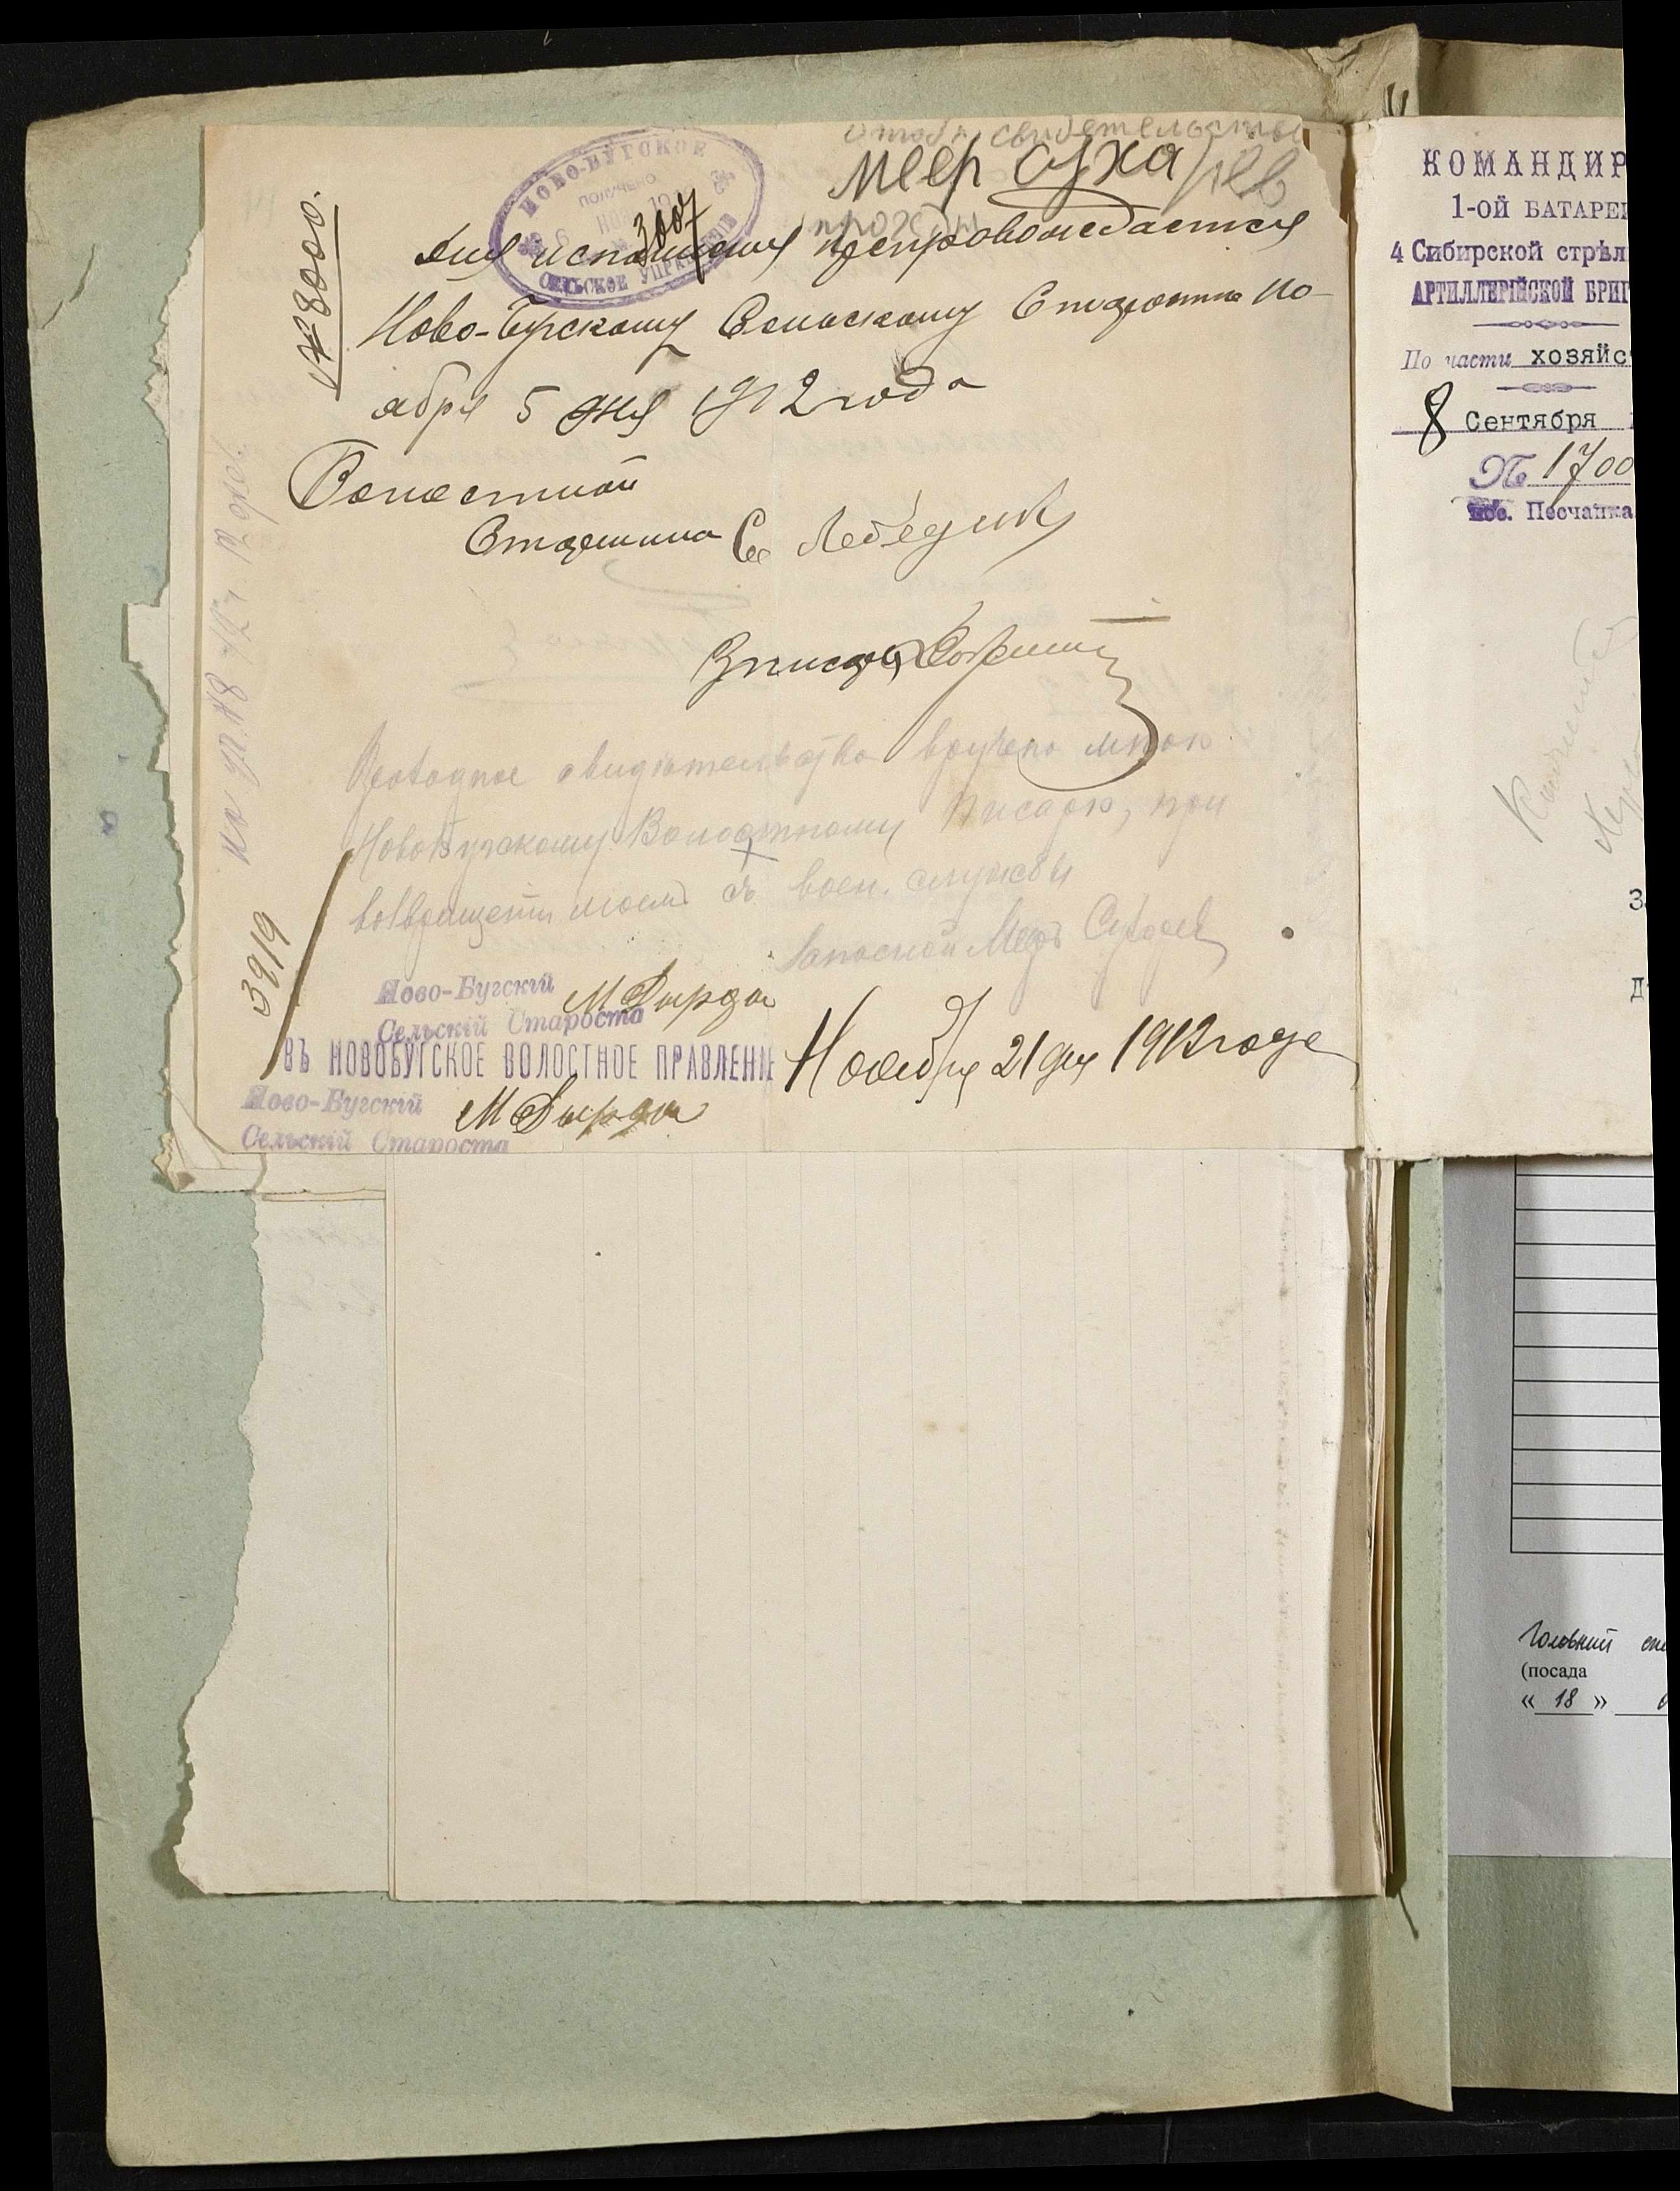 отоб. свидетельство
меер суха рев
проходн
НОВО-БУГСКОЕ
ПОЛУЧЕНО
6 НОЯ 19
№ 3007
СЕЛЬСКОЕ УПРАВЛЕНИЕ
№ 8000.
Для исполнения препровождается
Ново-Бугскому Сельскому Старосте но-
ября 5 дня 1912 года
Волостной
Старшина Св Лебедик
Проходное свидѣтельство вручено мною
Новобугскому Волостному Писарю, при
возвращении моемъ съ воен. службы
Запасной Меер Сухарев
3919
Ново-Бугскій
Сельскій Староста
М Дырда
ВЪ НОВОБУГСКОЕ ВОЛОСТНОЕ ПРАВЛЕНІЕ
Ноября 21 дня 1912 года
Ново-Бугскій
Сельскій Староста
М Дырда
КОМАНДИР
1-ой БАТАРЕИ
4 Сибирской стрѣл
АРТИЛЛЕРІЙСКОЙ БРИГ
По части хозяйс
8 Сентября
№ 1700
пос. Песчанка
З
Д
Головний
(посада
« 18 »